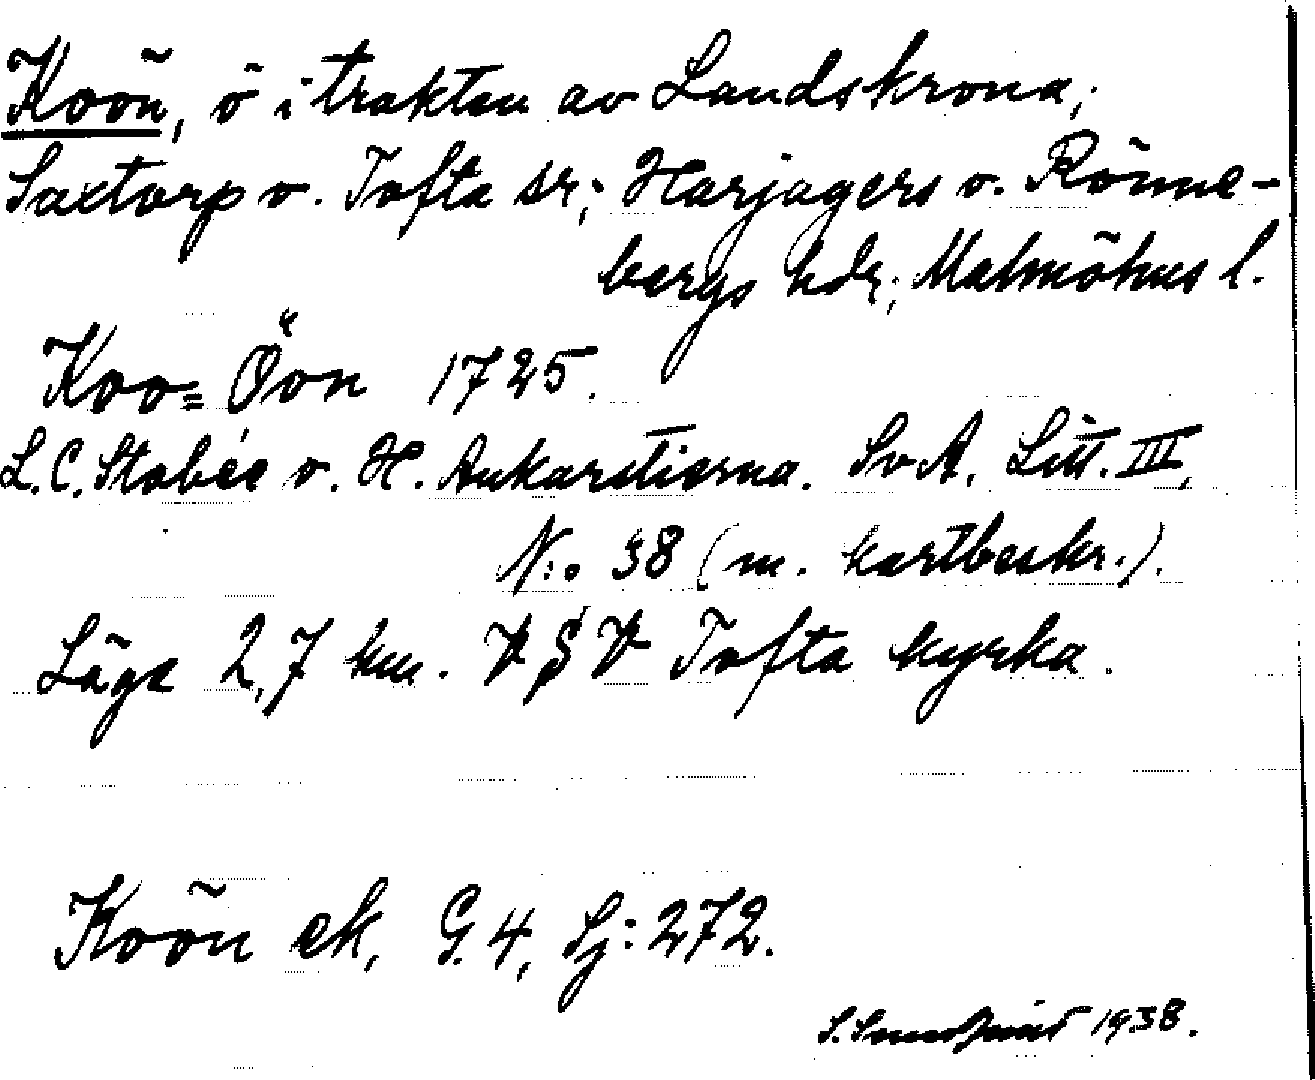 Koön, ö i trakten av Landskrona;
Saxtorp o. Tofta sr; Harjagers o. Rönne-
bergs hdr; Malmöhus l.
Koo= Öon 1725.
L.C. Stobée o. H. Ankarstierna. SvA. Litt. III,
N:o 38 (m. kartbeskr.).
Läge 2,7 km. VSV Tofta kyrka.
Koön ek, G.4, Sj: 272.
1938.